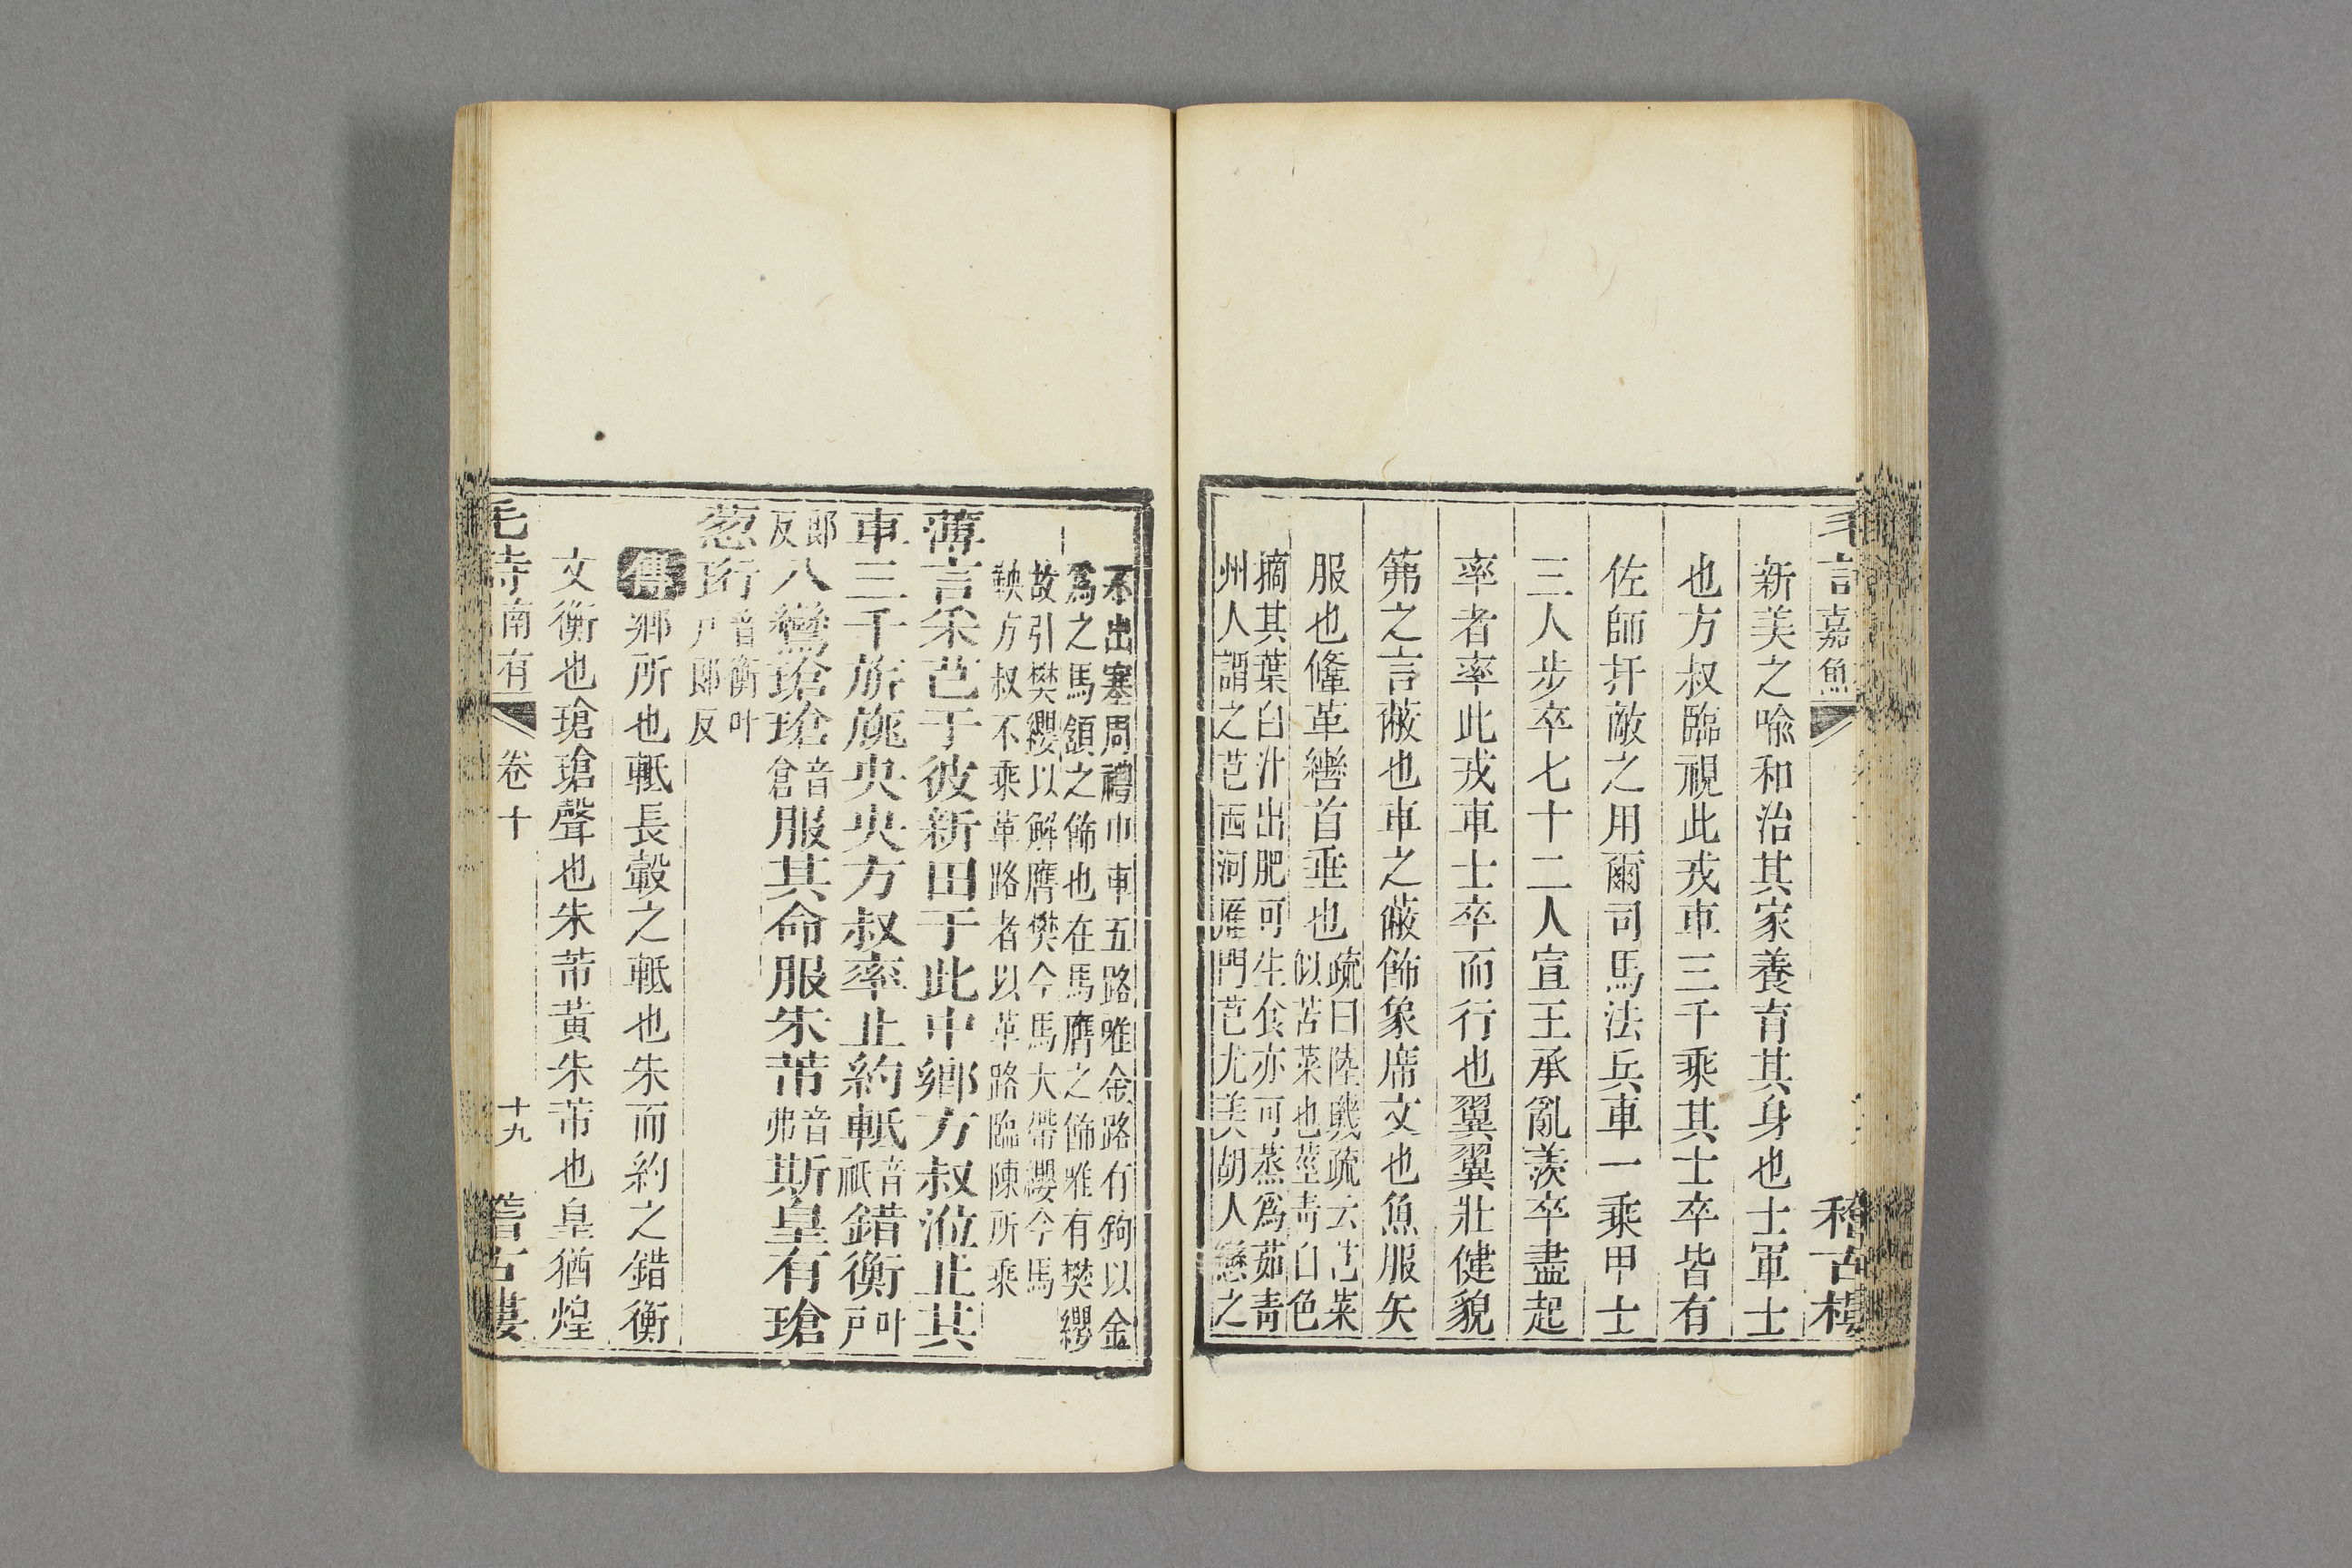 嘉魚
稽古樓
新美之喩和治其家養育其身也士軍士
也方叔臨視此戎車三千乘其士卒皆有
佐師扞敵之用爾司馬法兵車一乘甲士
三人步卒七十二人宣王承亂羨卒盡起
率者率此戎車士卒而行也翼翼壯健貌
笰之言蔽也車之蔽飾象席文也魚服矢
服也鞗革轡首垂也
疏曰陸璣疏云芑菜
似苦菜也莖靑白色
摘其葉白汁出肥可生食亦可蒸爲茹靑
州人謂之芑西河雁門芑尤美胡人戀之
不出塞周禮巾車五路唯金路有鉤以金
爲之馬頷之飾也在馬膺之飾唯有樊纓
故引樊纓以解膺樊今馬大帶纓今馬
鞅方叔不乘革路者以革路臨陳所乘
薄言采芑于彼新田于此中鄉方叔涖止其
車三千旂旐央央方叔率止約軧音祇錯衡叶戶
郎反八鸞瑲瑲音倉服其命服朱芾音弗斯皇有瑲
葱珩音衡叶戶郎反
傳鄉所也軧長轂之軧也朱而約之錯衡
文衡也瑲瑲聲也朱芾黃朱芾也皇猶煌
毛詩南有 卷十 十九 稽古樓